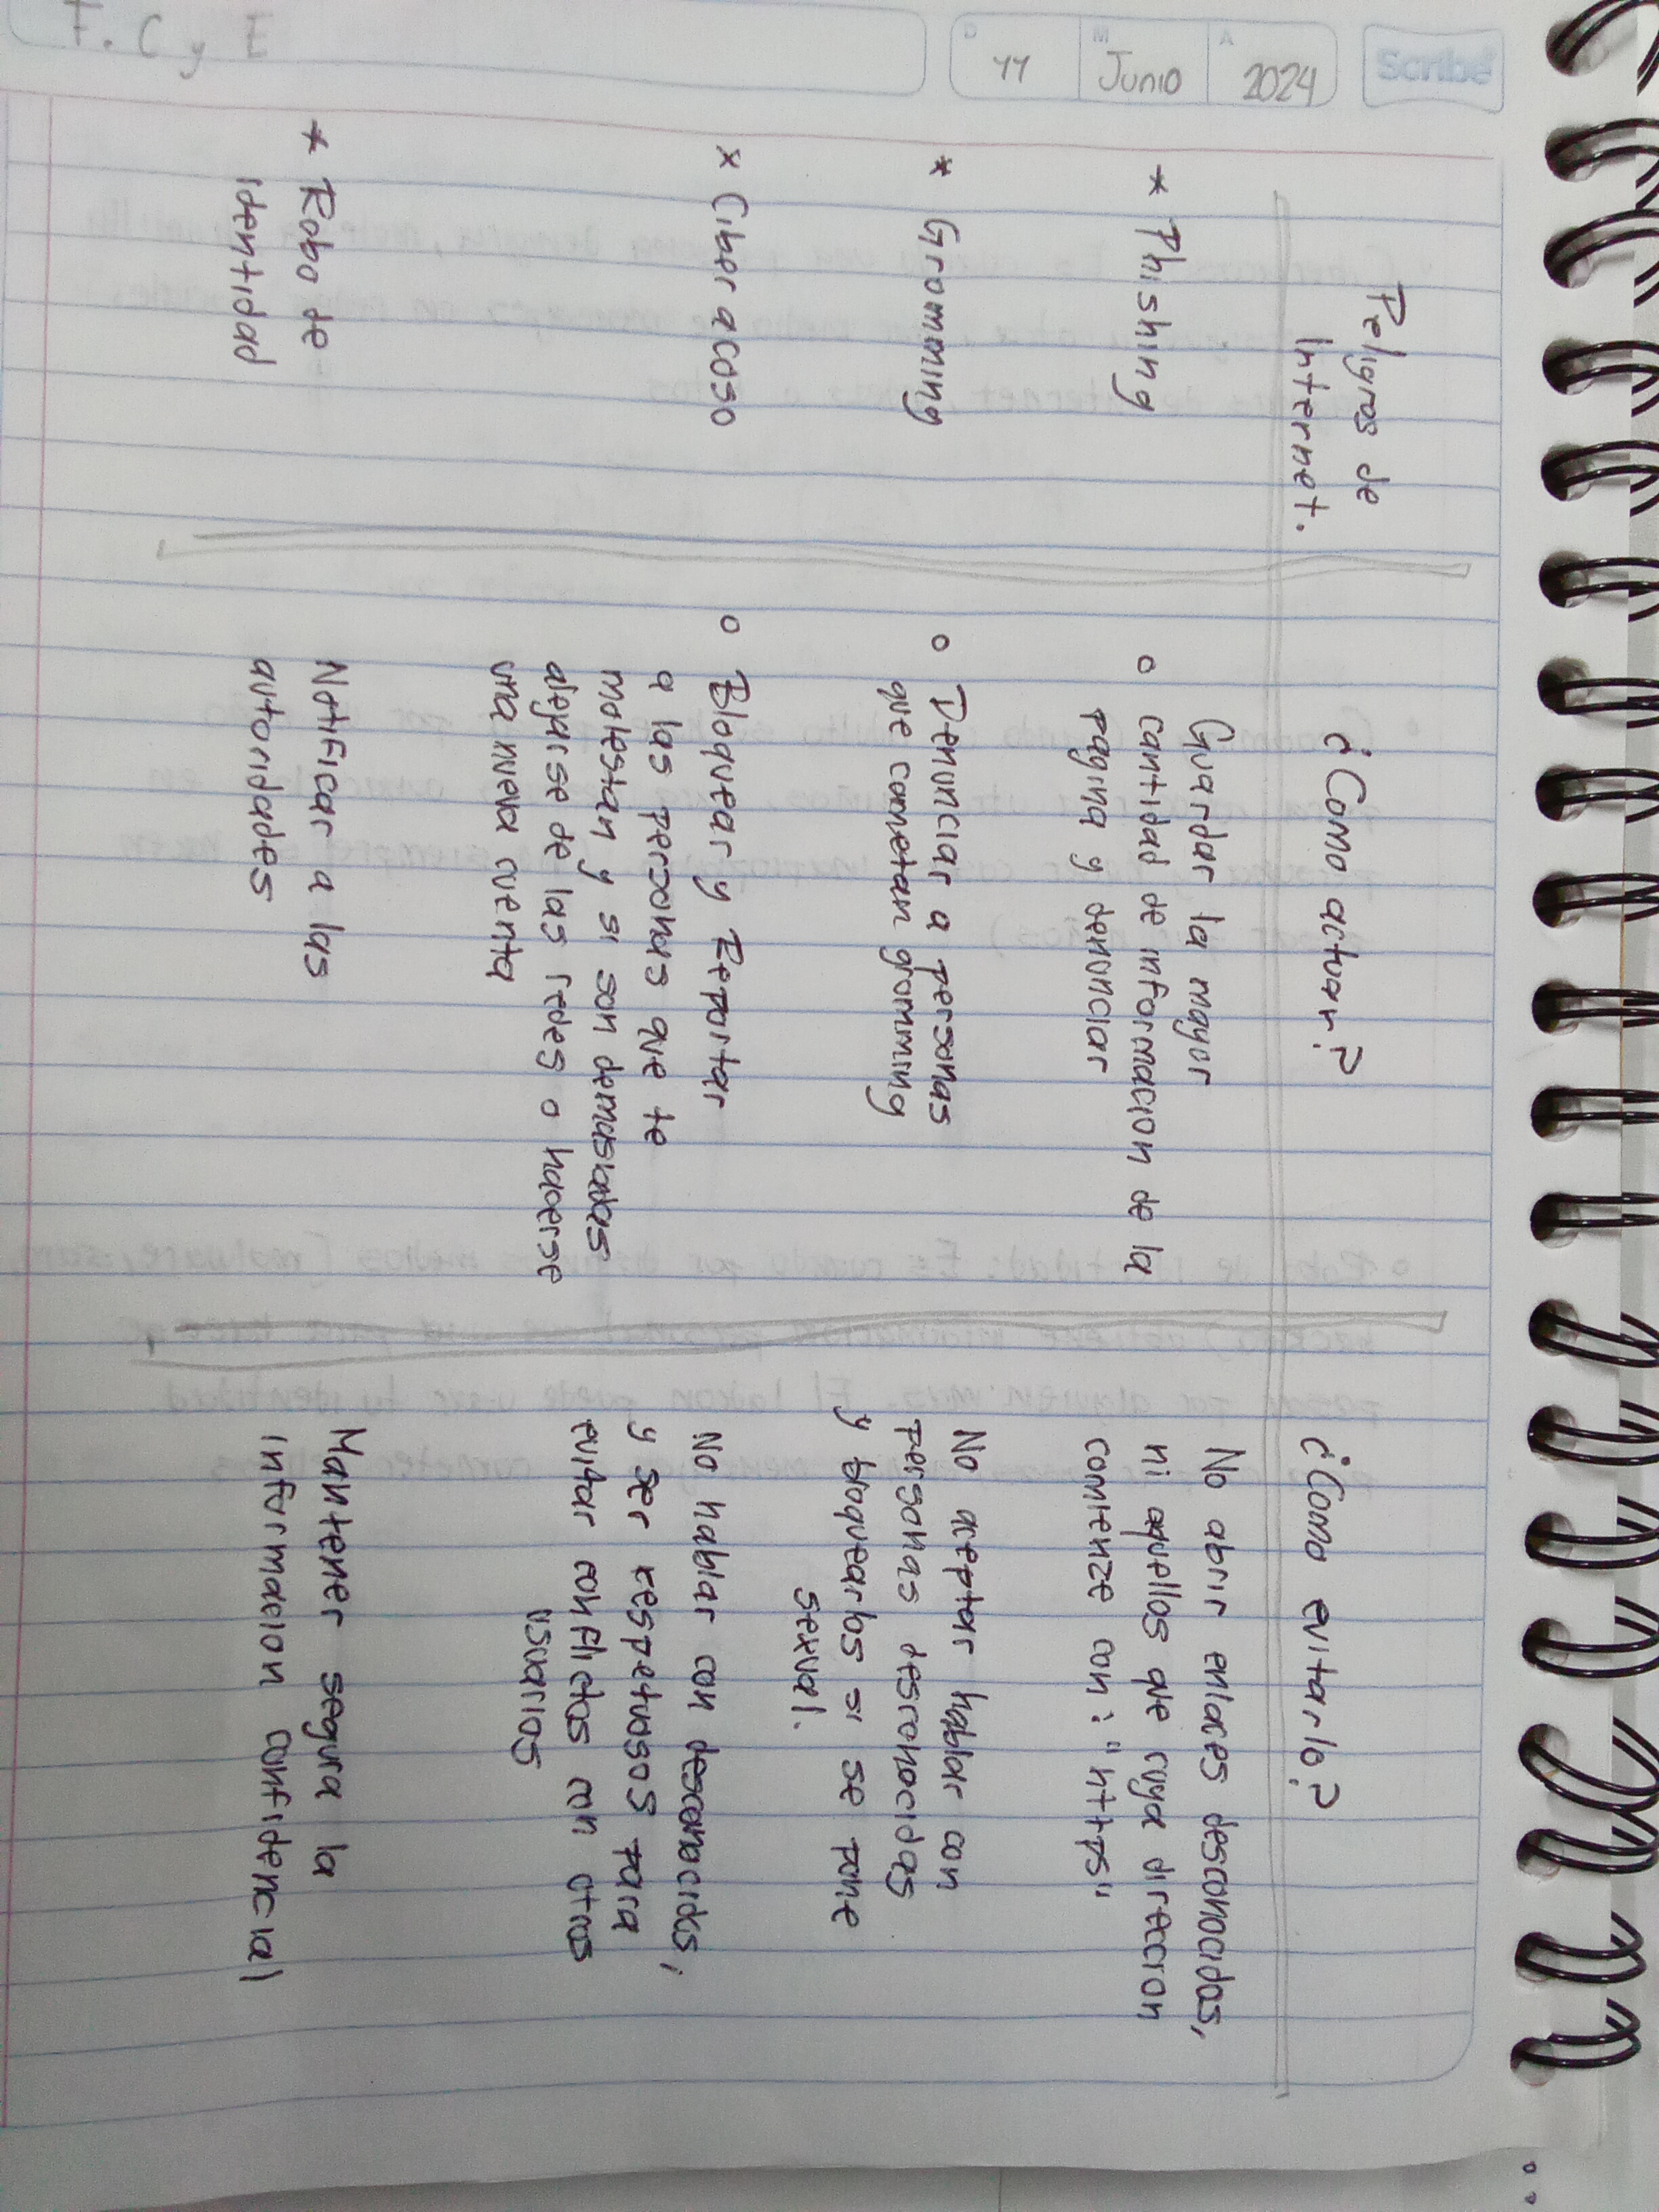 F. C y E
D
11
M
Junio
A
2024
Scribe
Peligros de
Internet.
¿Como actuar?
¿Como evitarlo?
* Phishing
Guardar la mayor
o cantidad de informacion de la
pagina y denunciar
No abrir enlaces desconocidos,
ni aquellos que cuya direccion
comienze con: "https"
* Gromming
o Denunciar a personas
que cometan gromming
No aceptar hablar con
personas desconocidas
y bloquearlos si se pone
sexual.
x Ciber acoso
o Bloquear y Reportar
a las personas que te
molestan y si son demasiadas
alejarse de las redes o hacerse
una nueva cuenta
No hablar con desconocidos,
y ser respetuosos para
evitar conflictos con otros
usuarios
* Robo de
identidad
Notificar a las
autoridades
Mantener segura la
informacion confidencial